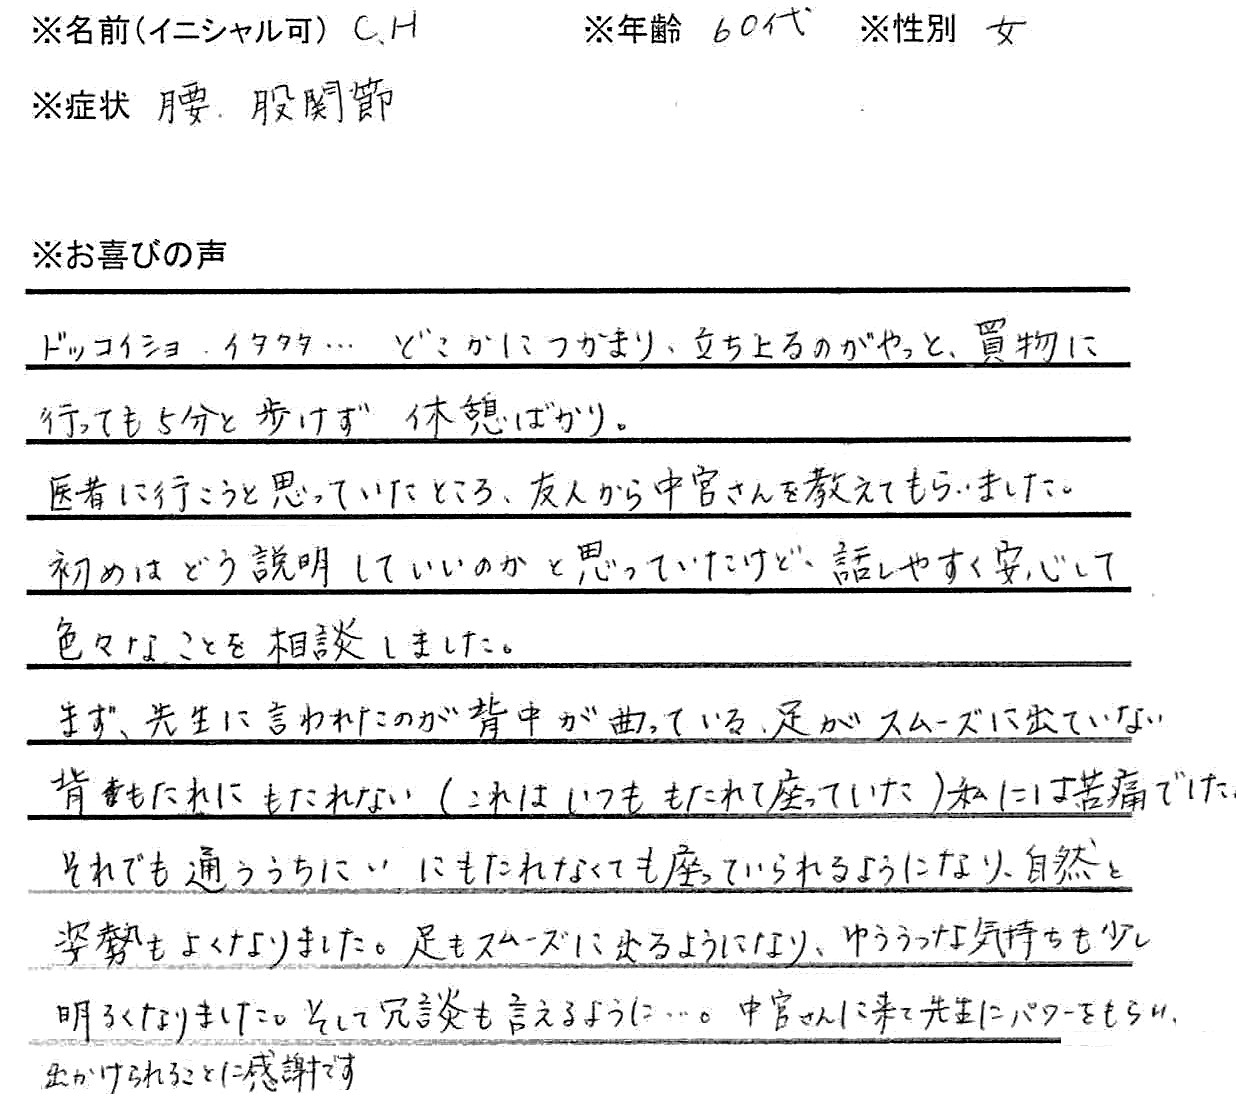 ※名前(イニシャル可) C.H ※年齢 60代 ※性別 女
※症状 腰. 股関節
※お喜びの声
ドッコイショ.イタタタ… どこかにつかまり、立ち上るのがやっと、買物に
行っても5分と歩けず 休憩ばかり。
医者に行こうと思っていたところ、友人から中宮さんを教えてもらいました。
初めはどう説明していいのかと思っていたけど、話しやすく安心して
色々なことを相談しました。
まず、先生に言われたのが背中が曲っている、足がスムーズに出ていない
背もたれにもたれない(これはいつももたれて座っていた)私には苦痛でした。
それでも通ううちにい にもたれなくても座っていられるようになり、自然と
姿勢もよくなりました。足もスムーズに出るようになり、ゆううつな気持ちも少し
明るくなりました。そして冗談も言えるように…。中宮さんに来て先生にパワーをもらい、
出かけられることに感謝です